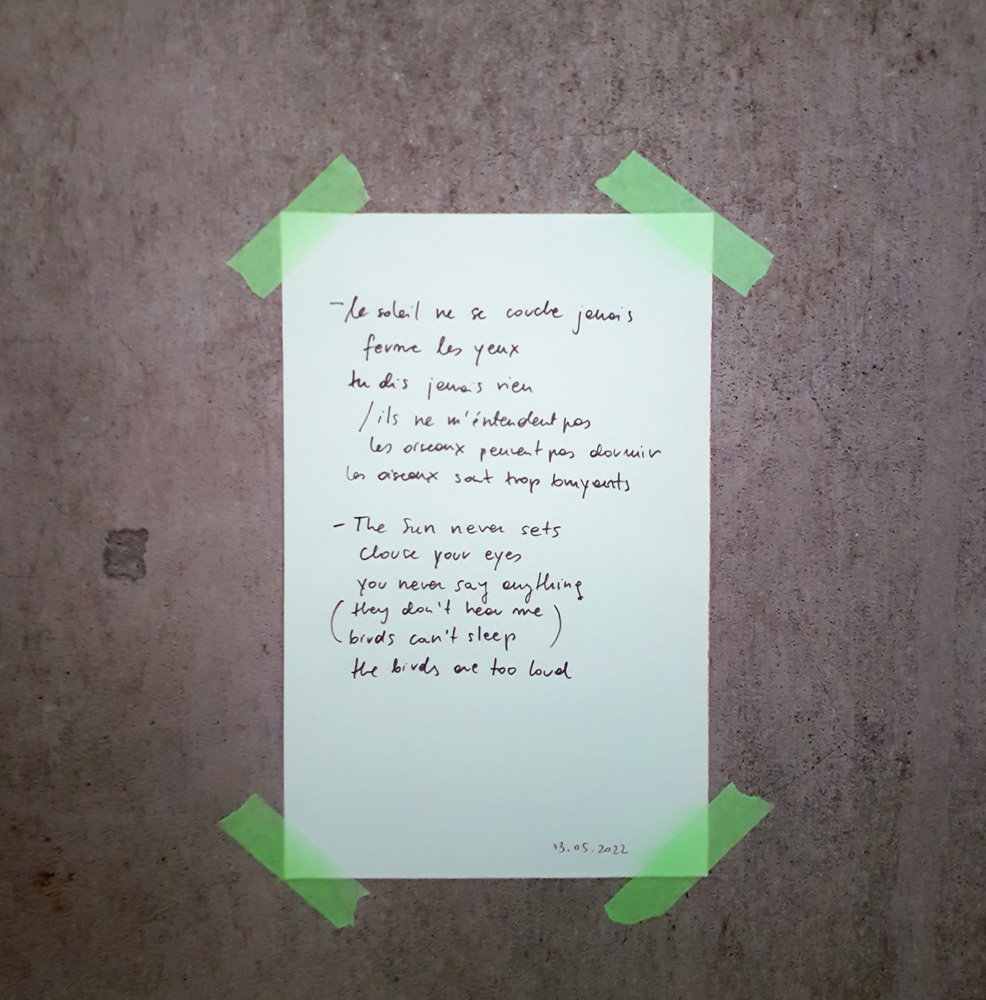 - le soleil ne se couche jamais
ferme les yeux
tu dis jamais rien
/ils ne m'éntendent pas
les oiseaux peuvent pas dormir
les oiseaux sont trop bruyants
- The Sun never sets
Clouse your eyes
you never say anything
(they don't hear me)
(birds can't sleep)
the birds are too loud
13.05.2022